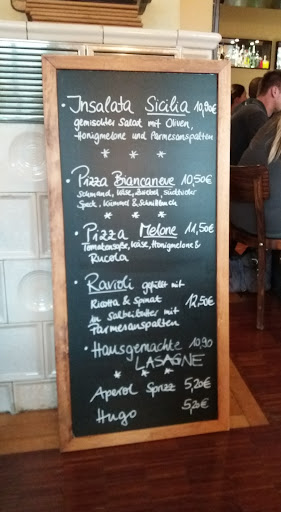 · Insalata Sicilia 10,90€
gemischter Salat mit Oliven,
Honigmelone und Parmesanspalten
* * *
· Pizza Biancaneve 10,50€
Schmand, Käse, Zwiebel, südtiroler
Speck, Kümmel & Schnittlauch
* * *
· Pizza Melone 11,50€
Tomatensoße, Käse, Honigmelone &
Rucola
· Ravioli gefüllt mit
Ricotta & Spinat 12,50€
in Salbeibutter mit
Parmesanspalten
· Hausgemachte 10,90
LASAGNE
* * *
Aperol Sprizz 5,20€
Hugo 5,20€